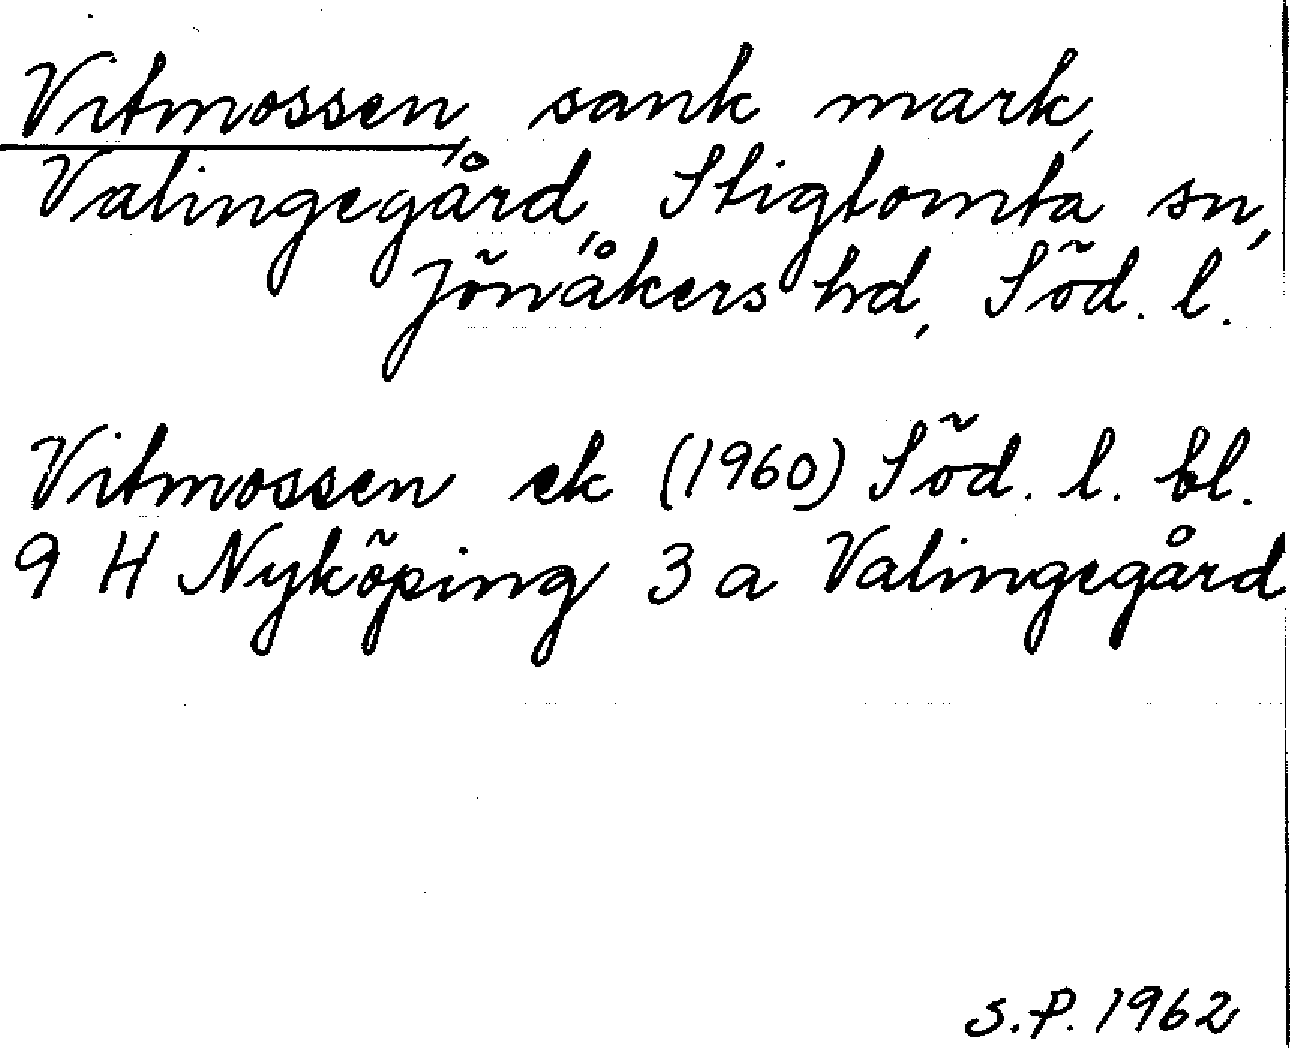 Vitmossen, sank mark,
Valingegård, Stigtomta sn,
Jönåkers hd, Söd. l.
Vitmossen ek (1960) Söd. l. bl.
9 H Nyköping 3 a Valingegård
S.P. 1962